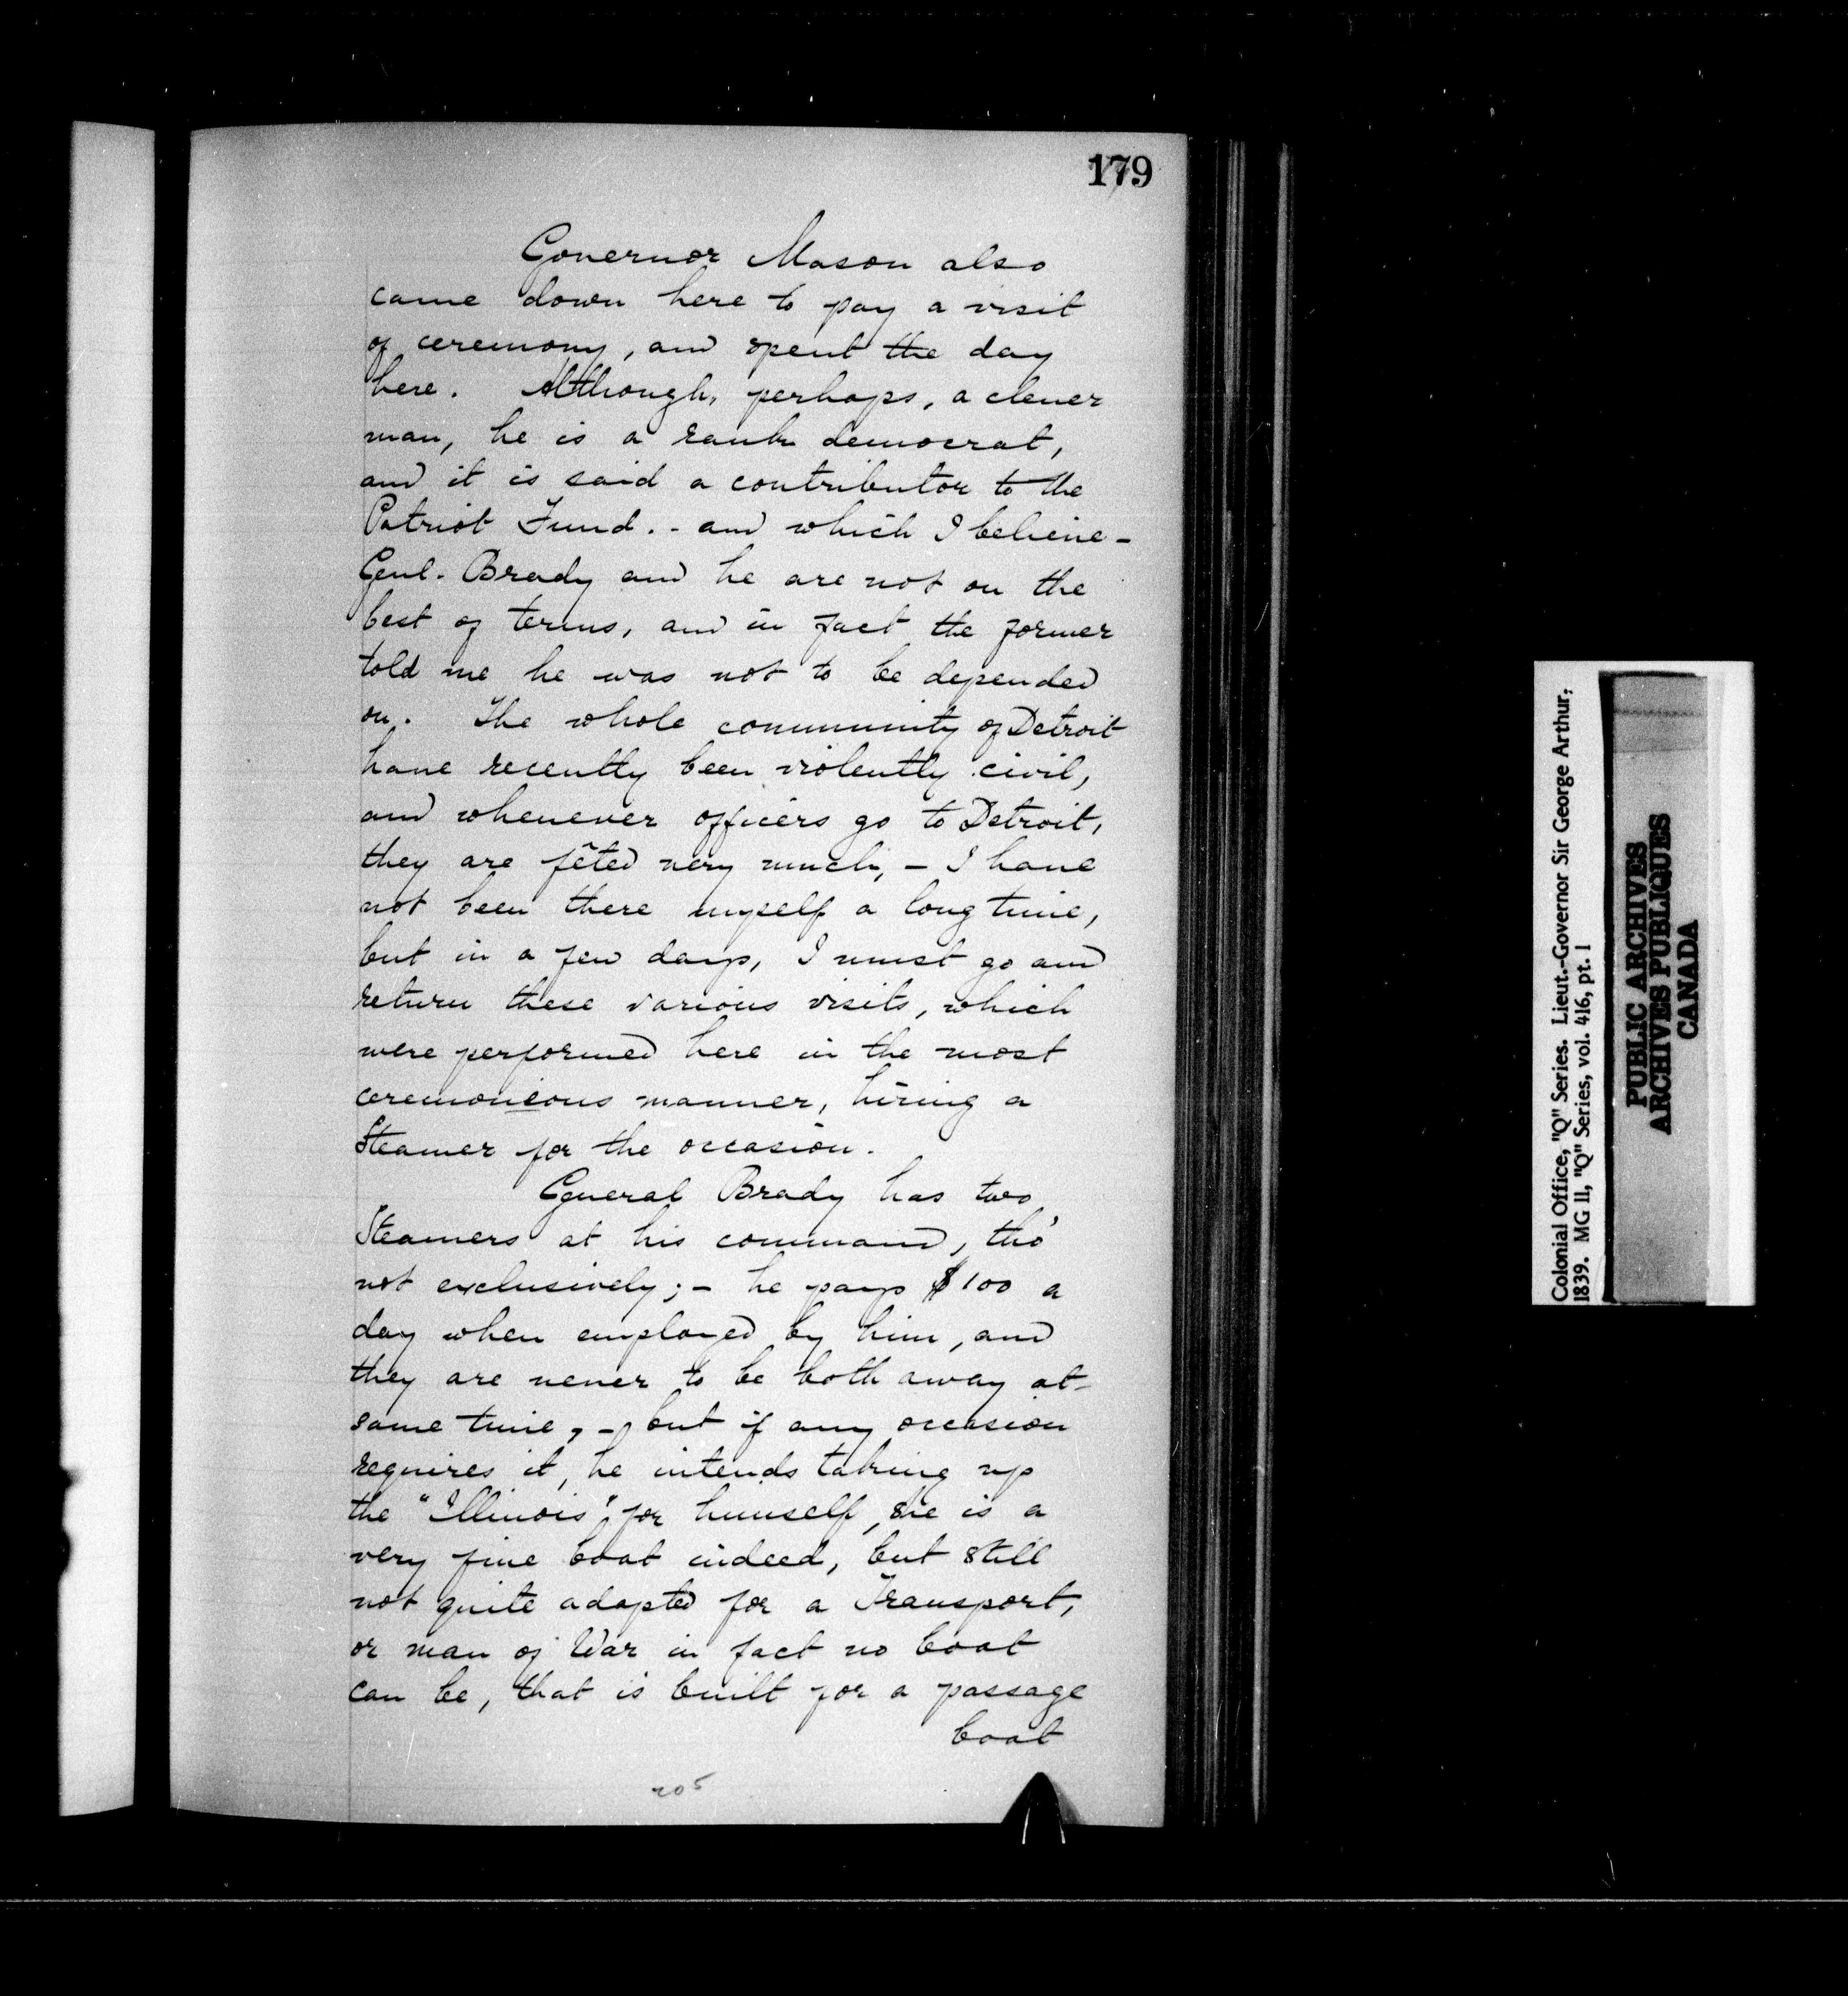 179
Governor Mason also
came down here to pay a visit
of ceremony, and spent the day
here. Although, perhaps, a clever
man, he is a rank democrat,
and it is said a contributor to the
Patriot Fund. - and which I believe -
Genl. Brady and he are not on the
best of terms, and in fact the former
told me he was not to be depended
on. The whole community of Detroit
have recently been violently civil,
and whenever officers go to Detroit,
they are fêted very much, - I have
not been there myself a long time,
but in a few days, I must go and
return these various visits, which
were performed here in the most
ceremoneous manner, hiring a
Steamer for the occasion.
General Brady has two
Steamers at his command, tho'
not exclusively; - he pays $100 a
day when employed by him, and
they are never to be both away at
same time, - but if any occasion
requires it, he intends taking up
the "Illinois" for himself, she is a
very fine boat indeed, but still
not quite adapted for a Transport,
or man of War in fact no boat
can be, that is built for a passage
boat
205
Colonial Office, "Q" Series. Lieut.-Governor Sir George Arthur,
1839. MG 11, "Q" Series, vol. 416, pt. 1
PUBLIC ARCHIVES
ARCHIVES PUBLIQUES
CANADA